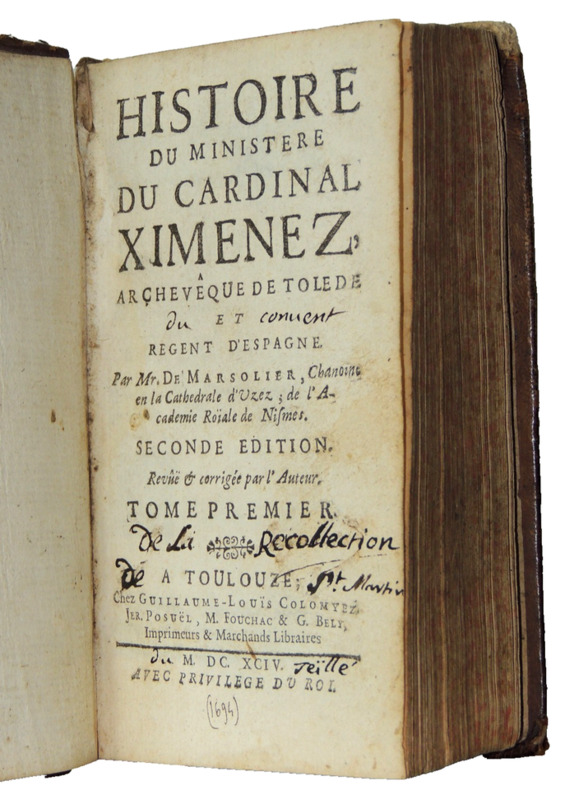 HISTOIRE
DU MINISTERE
DU CARDINAL
XIMENEZ,
ARCHEVÊQUE DE TOLEDE
du ET convent
REGENT D'ESPAGNE.
Par Mr. DE MARSOLIER, Chanoine
en la Cathedrale d'Uzez ; de l'A-
cademie Roïale de Nismes.
SECONDE EDITION.
Revûë & corrigée par l'Auteur.
TOME PREMIER.
De La Recollection
De A TOULOUZE, St. Martin
Chez GUILLAUME-LOUÏS COLOMYEZ,
JER. POSUËL, M. FOUCHAC & G. BELY,
Imprimeurs & Marchands Libraires
du M. DC. XCIV. teillé
AVEC PRIVILEGE DU ROI.
(1694)